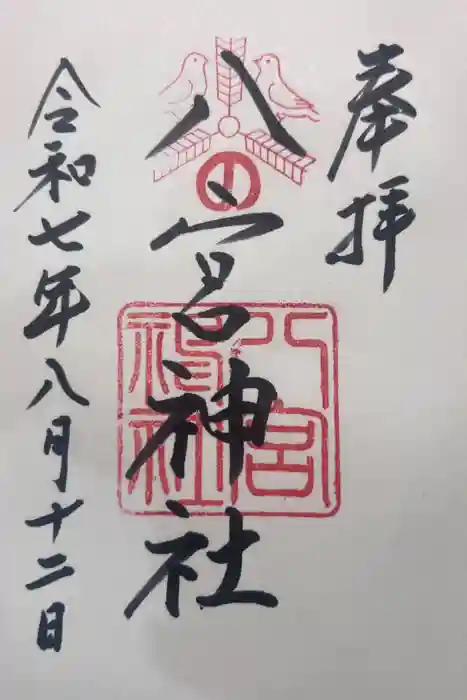 奉拝
八宮神社
八宮
神社
令和七年八月十二日